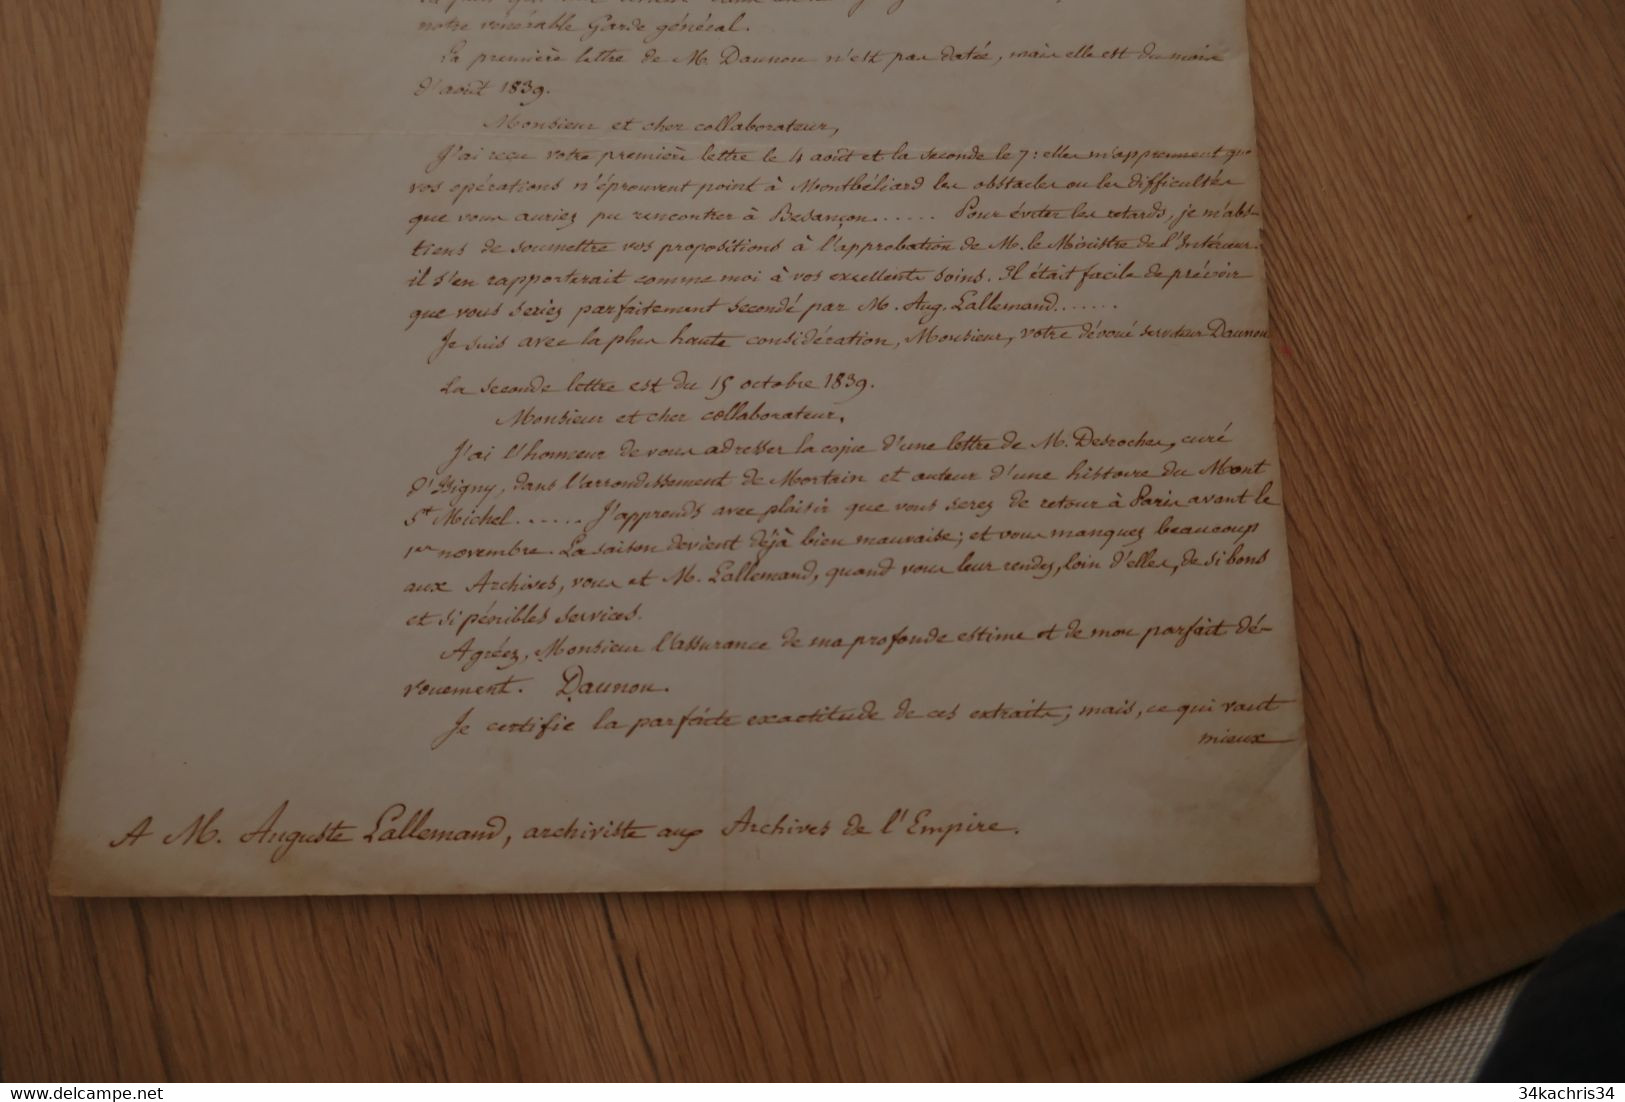 notre vénérable Garde général.
La première lettre de M. Daunou n'est pas datée, mais elle est du mois
d'août 1839.
Monsieur et cher collaborateur,
J'ai reçu votre première lettre le 4 août et la seconde le 7 : elles m'apprennent que
vos opérations n'éprouvent point à Montbéliard les obstacles ou les difficultés
que vous auriez pu rencontrer à Besançon...... Pour éviter les retards, je m'abs-
tiens de soumettre vos propositions à l'approbation de M. le Ministre de l'Intérieur.
il s'en rapporterait comme moi à vos excellents soins. Il était facile de prévoir
que vous seriez parfaitement secondé par M. Aug. Lallemand......
Je suis avec la plus haute considération, Monsieur, votre dévoué serviteur Daunou
La seconde lettre est du 15 octobre 1839.
Monsieur et cher collaborateur,
J'ai l'honneur de vous adresser la copie d'une lettre de M. Desroches, curé
d'Isigny, dans l'arrondissement de Mortain et auteur d'une histoire du Mont
St Michel...... J'apprends avec plaisir que vous serez de retour à Paris avant le
1er novembre. La saison devient déjà bien mauvaise; et vous manquez beaucoup
aux Archives, vous et M. Lallemand, quand vous leur rendez, loin d'elles, de si bons
et si pénibles services.
Agréez, Monsieur l'assurance de ma profonde estime et de mon parfait dé-
vouement. Daunou.
Je certifie la parfaite exactitude de ces extraits; mais, ce qui vaut
mieux
A M. Auguste Lallemand, archiviste aux Archives de l'Empire.
delcampe.net
34kachris34